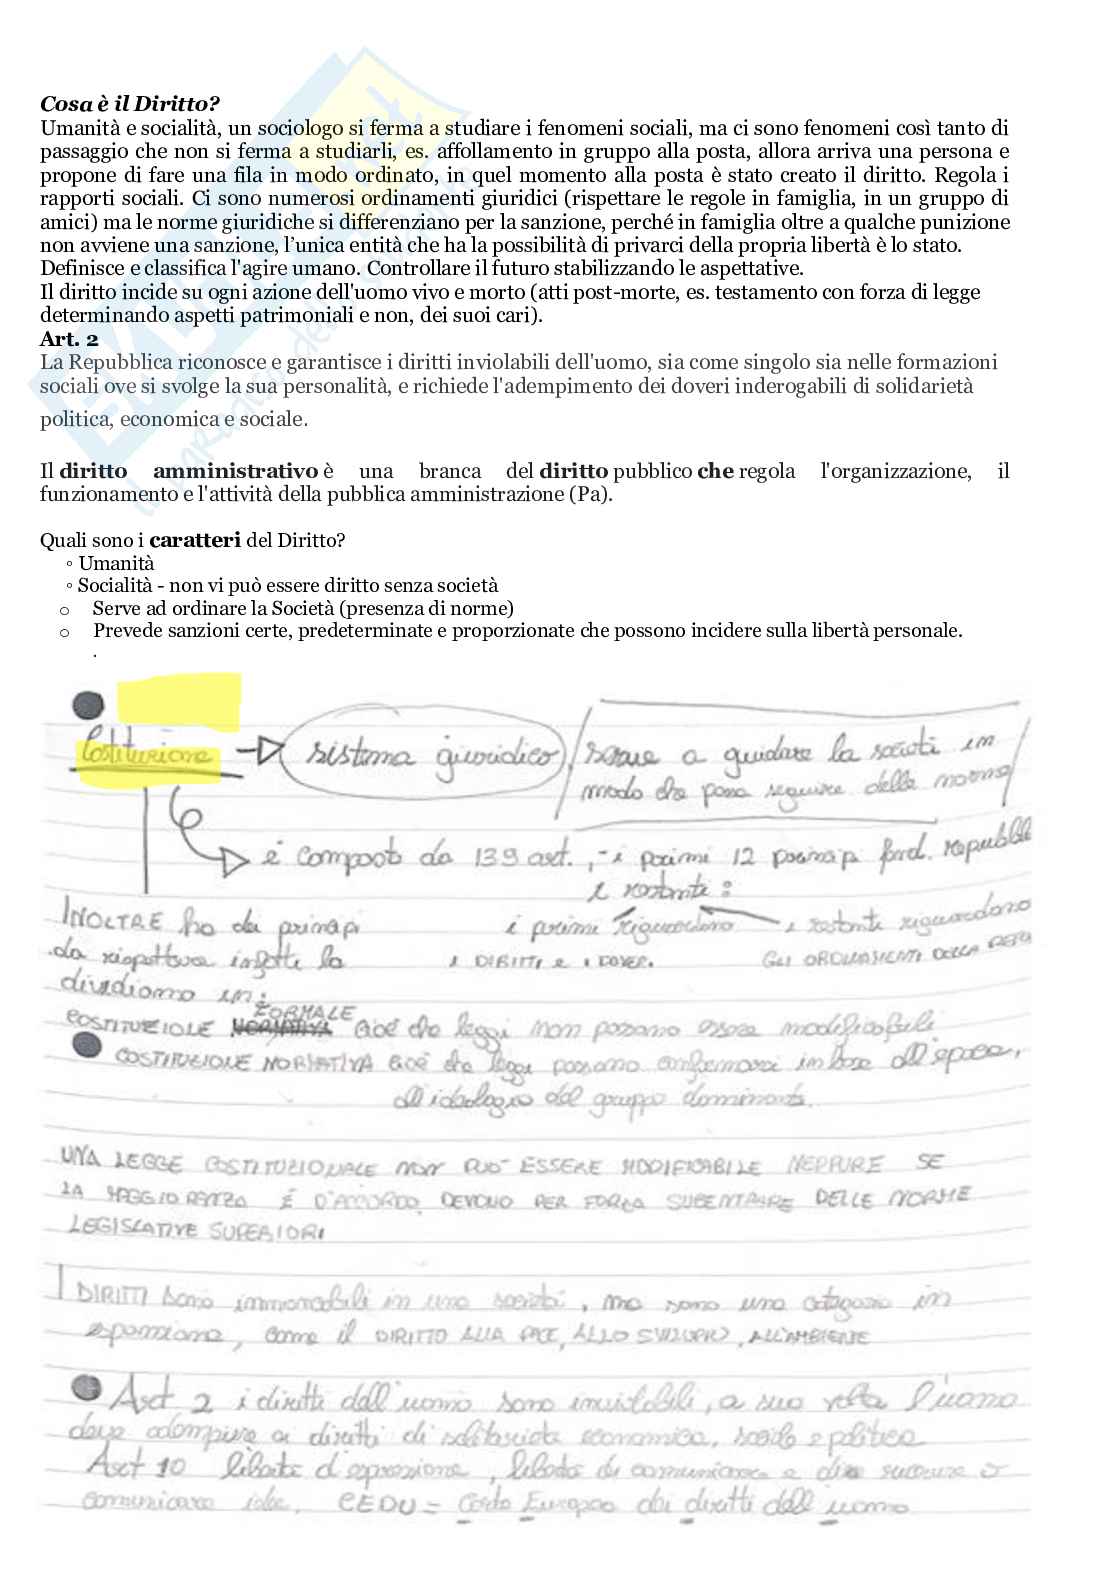 Cosa è il Diritto?
Umanità e socialità, un sociologo si ferma a studiare i fenomeni sociali, ma ci sono fenomeni così tanto di
passaggio che non si ferma a studiarli, es. affollamento in gruppo alla posta, allora arriva una persona e
propone di fare una fila in modo ordinato, in quel momento alla posta è stato creato il diritto. Regola i
rapporti sociali. Ci sono numerosi ordinamenti giuridici (rispettare le regole in famiglia, in un gruppo di
amici) ma le norme giuridiche si differenziano per la sanzione, perché in famiglia oltre a qualche punizione
non avviene una sanzione, l’unica entità che ha la possibilità di privarci della propria libertà è lo stato.
Definisce e classifica l'agire umano. Controllare il futuro stabilizzando le aspettative.
Il diritto incide su ogni azione dell'uomo vivo e morto (atti post-morte, es. testamento con forza di legge
determinando aspetti patrimoniali e non, dei suoi cari).
Art. 2
La Repubblica riconosce e garantisce i diritti inviolabili dell'uomo, sia come singolo sia nelle formazioni
sociali ove si svolge la sua personalità, e richiede l'adempimento dei doveri inderogabili di solidarietà
politica, economica e sociale.
Il diritto amministrativo è una branca del diritto pubblico che regola l'organizzazione, il
funzionamento e l'attività della pubblica amministrazione (Pa).
Quali sono i caratteri del Diritto?
◦ Umanità
◦ Socialità - non vi può essere diritto senza società
o Serve ad ordinare la Società (presenza di norme)
o Prevede sanzioni certe, predeterminate e proporzionate che possono incidere sulla libertà personale.
.
Costituzione → sistema giuridico, serve a guidare la società in
modo che possa seguire delle norme
è composto da 139 art., - i primi 12 princip. fond. repubbl
e restante:
INOLTRE ha dei principi i primi riguardano e restante riguardono
da rispettare infatti la i DIRITTI e i DOVERI. GLI ORDINAMENTI DELLA REPU
dividiamo in:
COSTITUZIONE FORMALE cioè che leggi non possono essere modificabili
COSTITUZIONE NORMATIVA cioè che leggi possono conformarsi in base all'epoca,
all'ideologia del gruppo dominante.
UNA LEGGE COSTITUZIONALE NON PUÒ ESSERE MODIFICABILE NEPPURE SE
LA MAGGIORANZA È D'ACCORDO, DEVONO PER FORZA SUBENTRARE DELLE NORME
LEGISLATIVE SUPERIORI
I DIRITTI sono in una società, ma sono una categoria in
espansione, come il DIRITTO ALLA PACE, ALLO SVILUPPO, ALL'AMBIENTE
Art 2 i diritti dell'uomo sono inviolabili, a sua volta l'uomo
deve adempiere ai diritti di solidarietà economica, sociale e politica
Art 10 libertà d'espressione, libertà di comunicare e di o
comunicare idee. CEDU = Corte Europea dei diritti dell'uomo